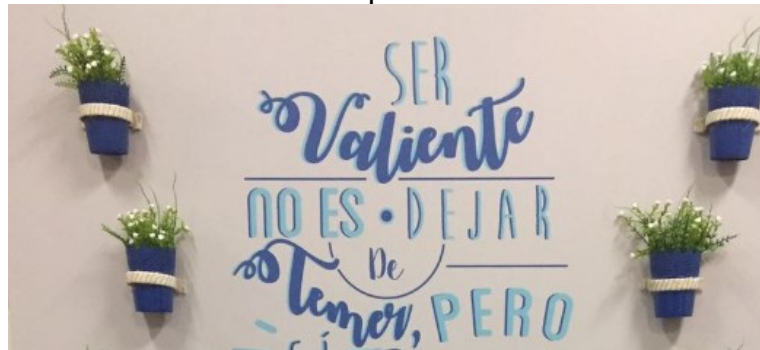 SER
Valiente
NO ES • DEJAR
De
Temer, PERO